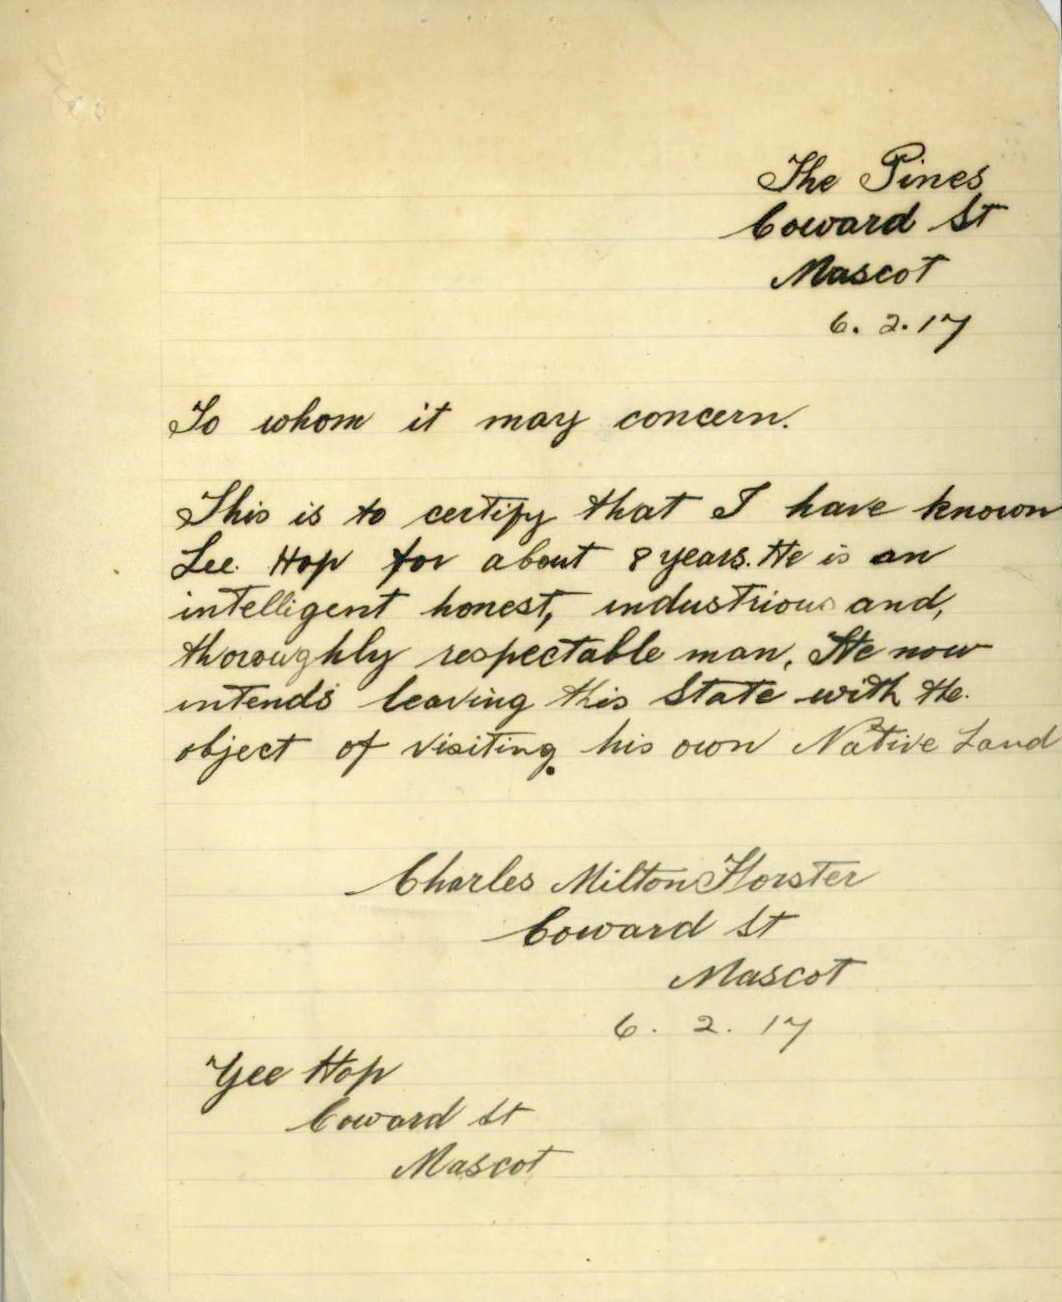 The Pines
Coward St
Mascot
6. 2. 17
To whom it may concern.
This is to certify that I have known
Lee Hop for about 8 years. He is an
intelligent honest, industrious and,
thoroughly respectable man. He now
intends leaving this State with the
object of visiting his own Native Land
Charles Milton Horster
Coward St
Mascot
6. 2. 17
Yee Hop
Coward St
Mascot